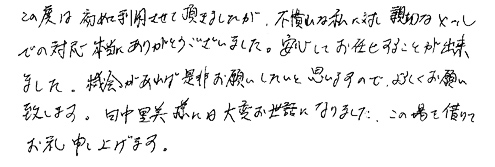 この度は初めて利用させて頂きましたが、不慣れな私に対し親切なメール
での対応本当にありがとうございました。安心してお任せすることが出来
ました。機会があれば是非お願いしたいと思いますので、よろしくお願い
致します。田中里美様には大変お世話になりました。この場を借りて
お礼申し上げます。